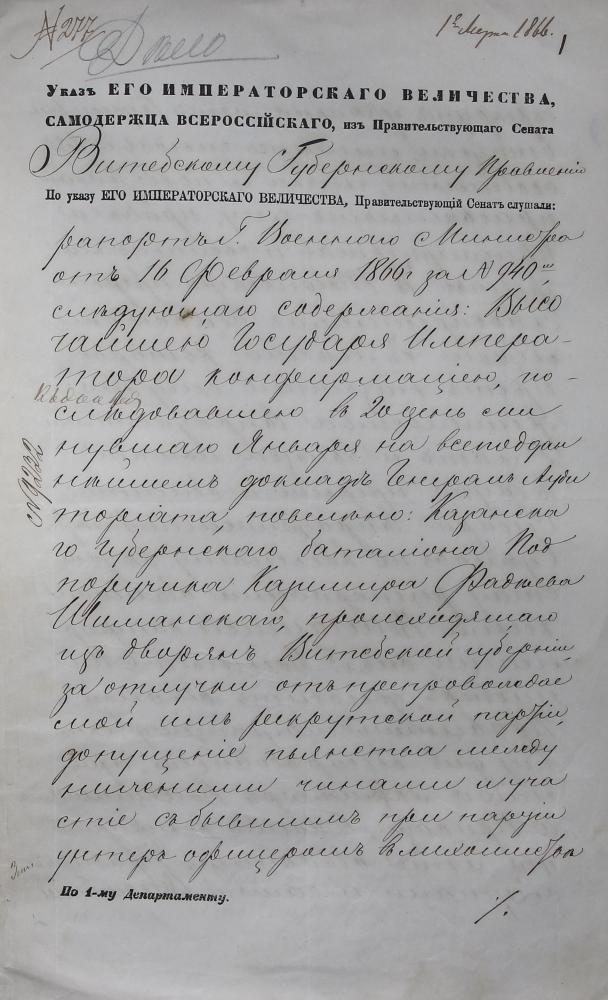 № 277
Дѣло
1го Марта 1866.
1
Указъ ЕГО ИМПЕРАТОРСКАГО ВЕЛИЧЕСТВА,
САМОДЕРЖЦА ВСЕРОССІЙСКАГО, изъ Правительствующаго Сената
Витебскому Губернскому Правленію
По указу ЕГО ИМПЕРАТОРСКАГО ВЕЛИЧЕСТВА, Правительствующій Сенатъ слушали:
рапортъ Г. Военнаго Министра
отъ 16 Февраля 1866 г за № 940
слѣдующаго содержанія: Высо
чайшею Государя Импера-
тора конфирмаціею, по-
слѣдовавшею въ 20 день ми
нувшаго Января на всеподдан
нѣйшемъ докладѣ Генералъ Ауди
торіата, повелѣно: Казанска
го губернскаго баталіона Под
поручика Казимира Фадѣева
Шиманскаго, происходящаго
изъ дворянъ Витебской губерніи,
за отлучки отъ препровождае
мой имъ рекрутской партіи,
допущеніе пьянства между
нижними чинами и уча
стіе съ бывшимъ при партіи
унтеръ офицеромъ в лихоимствѣ
По 1-му Департаменту.